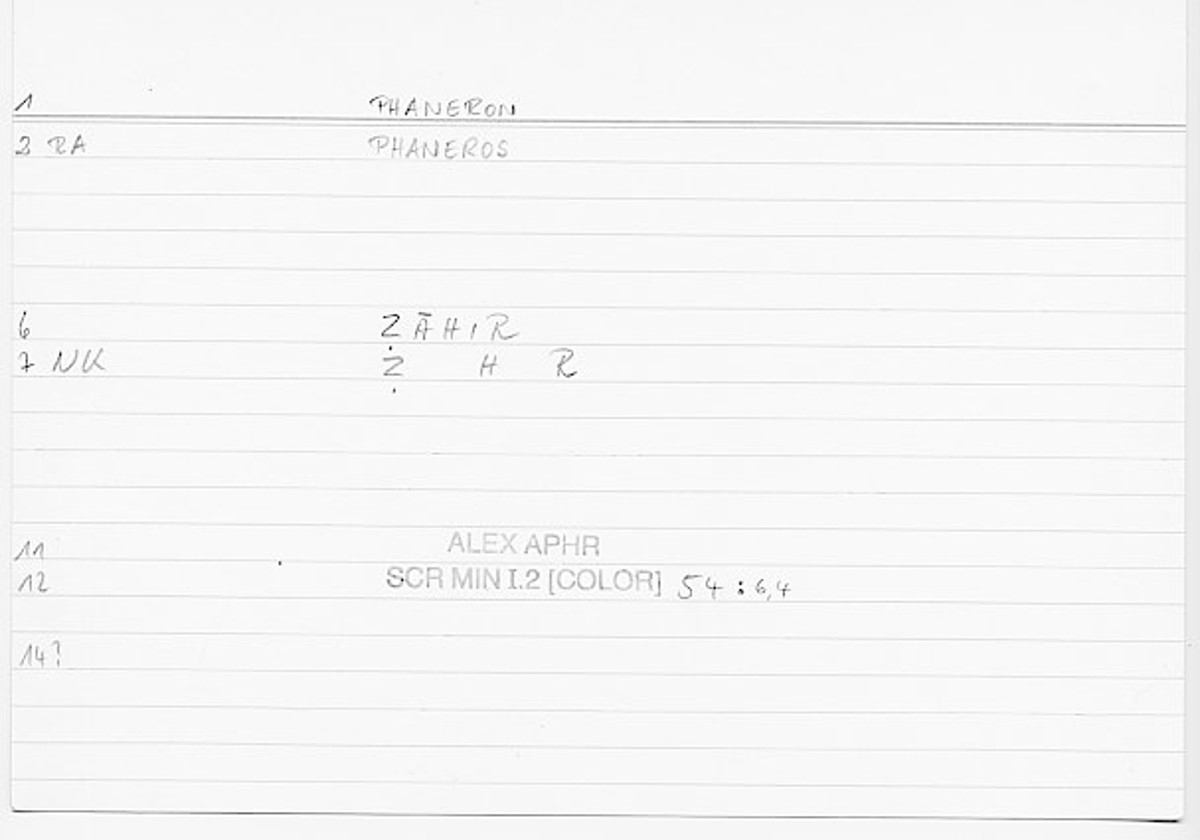 1 PHANERON
2 RA PHANEROS
6 ẒĀHIR
7 NK Ẓ H R
11 ALEX APHR
12 SCR MIN I.2 [COLOR] 54 : 6,4
14?